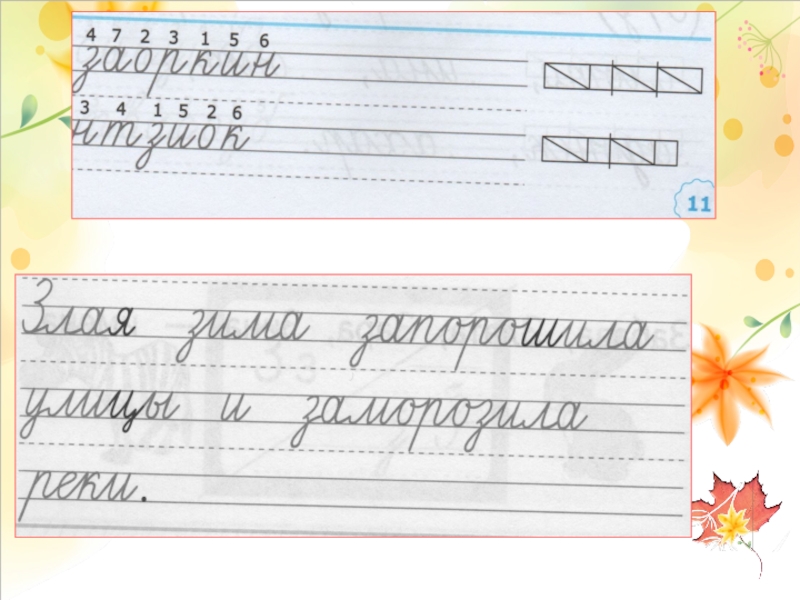 4 7 2 3 1 5 6
заоркин
3 4 1 5 2 6
нтзиок
11
Злая зима запорошила
улицы и заморозила
реки.